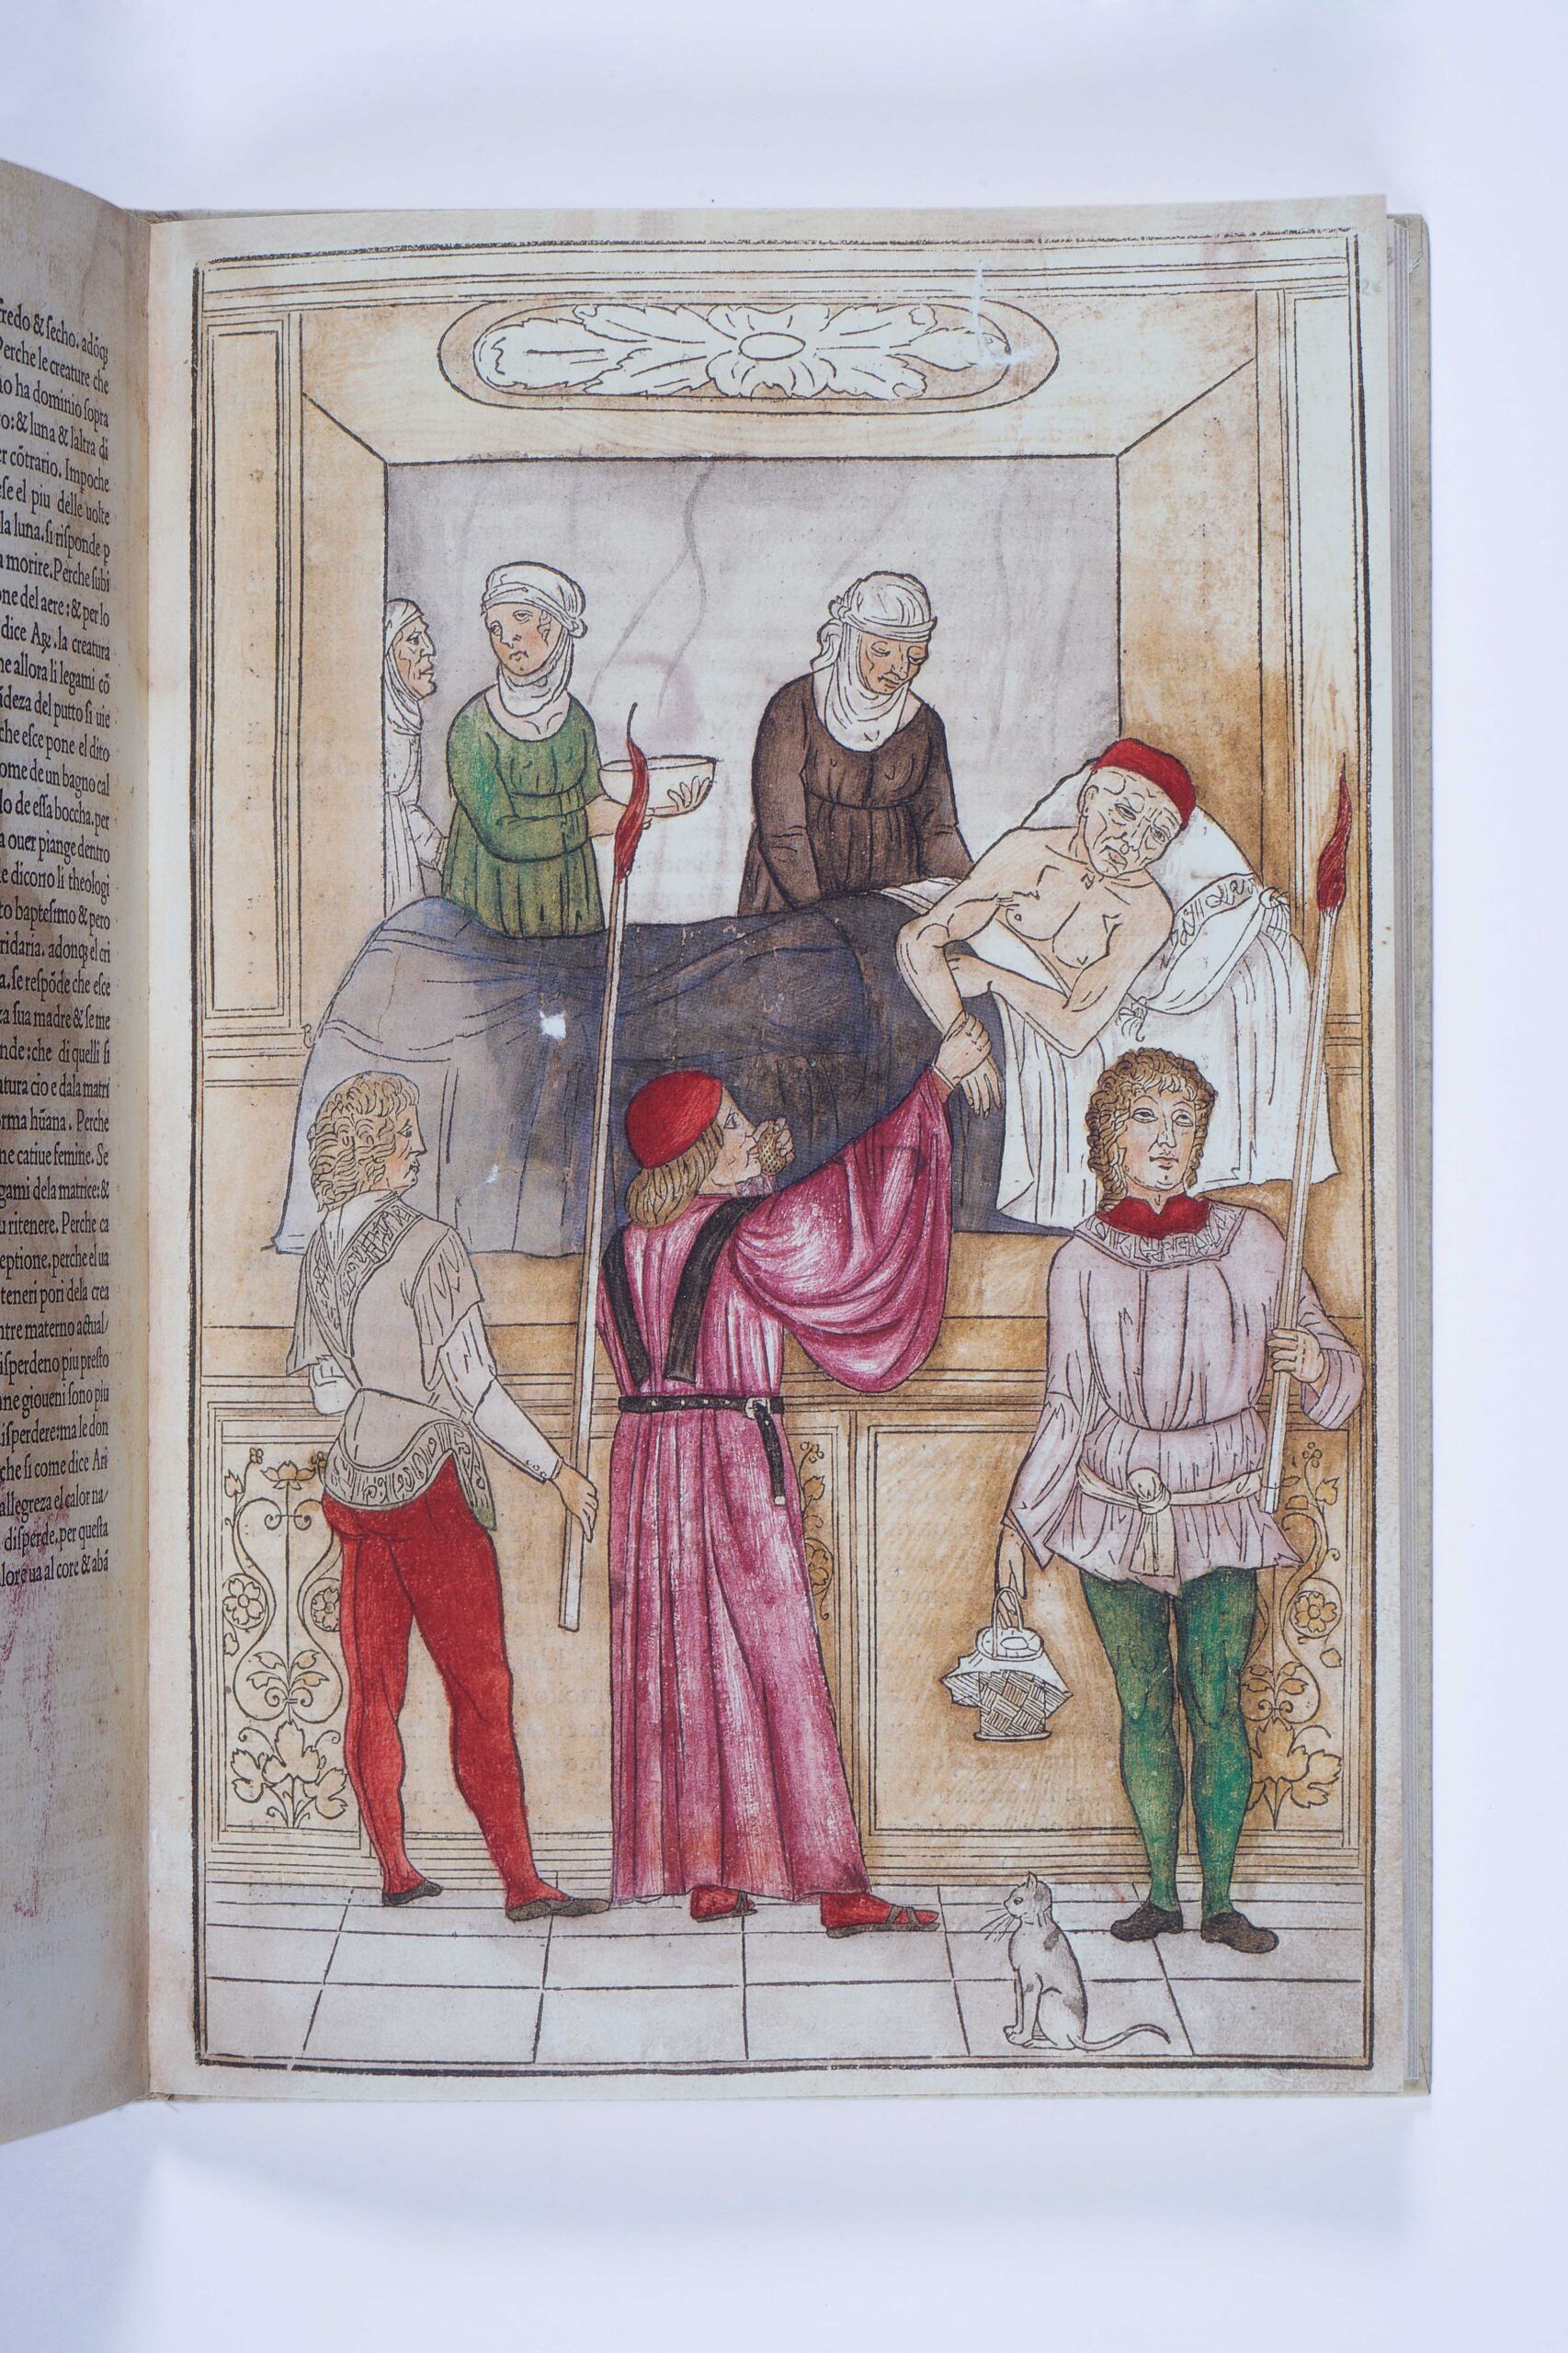 fredo & ſecho. adōq;
Perche le creature che
io ha dominio ſopra
o: & luna & laltra di
er cōtrario. Impoche
eſe el piu delle uolte
la luna. ſi riſponde p
a morire. Perche ſubi
one del aere: & per lo
dice Aꝝ. la creatura
he allora li legami cō
ādeza del putto ſi uie
che eſce pone el dito
ome de un bagno cal
lo de eſſa boccha. per
a ouer piange dentro
e dicono li theologi
to bapteſmo & pero
ridaria. adonq; el cri
a. ſe reſpōde che eſce
za ſua madre & ſe me
nde: che di quelli ſi
atura cio e dala matri
orma hūana. Perche
ne catiue femine. Se
gami dela matrice: &
u ritenere. Perche ca
eptione. perche el ua
teneri pori dela crea
ntre materno actual/
iſperdeno piu preſto
ne gioueni ſono piu
iſperdere: ma le don
che ſi come dice Ari
allegreza el calor na/
diſperde. per queſta
lore ua al core & abā